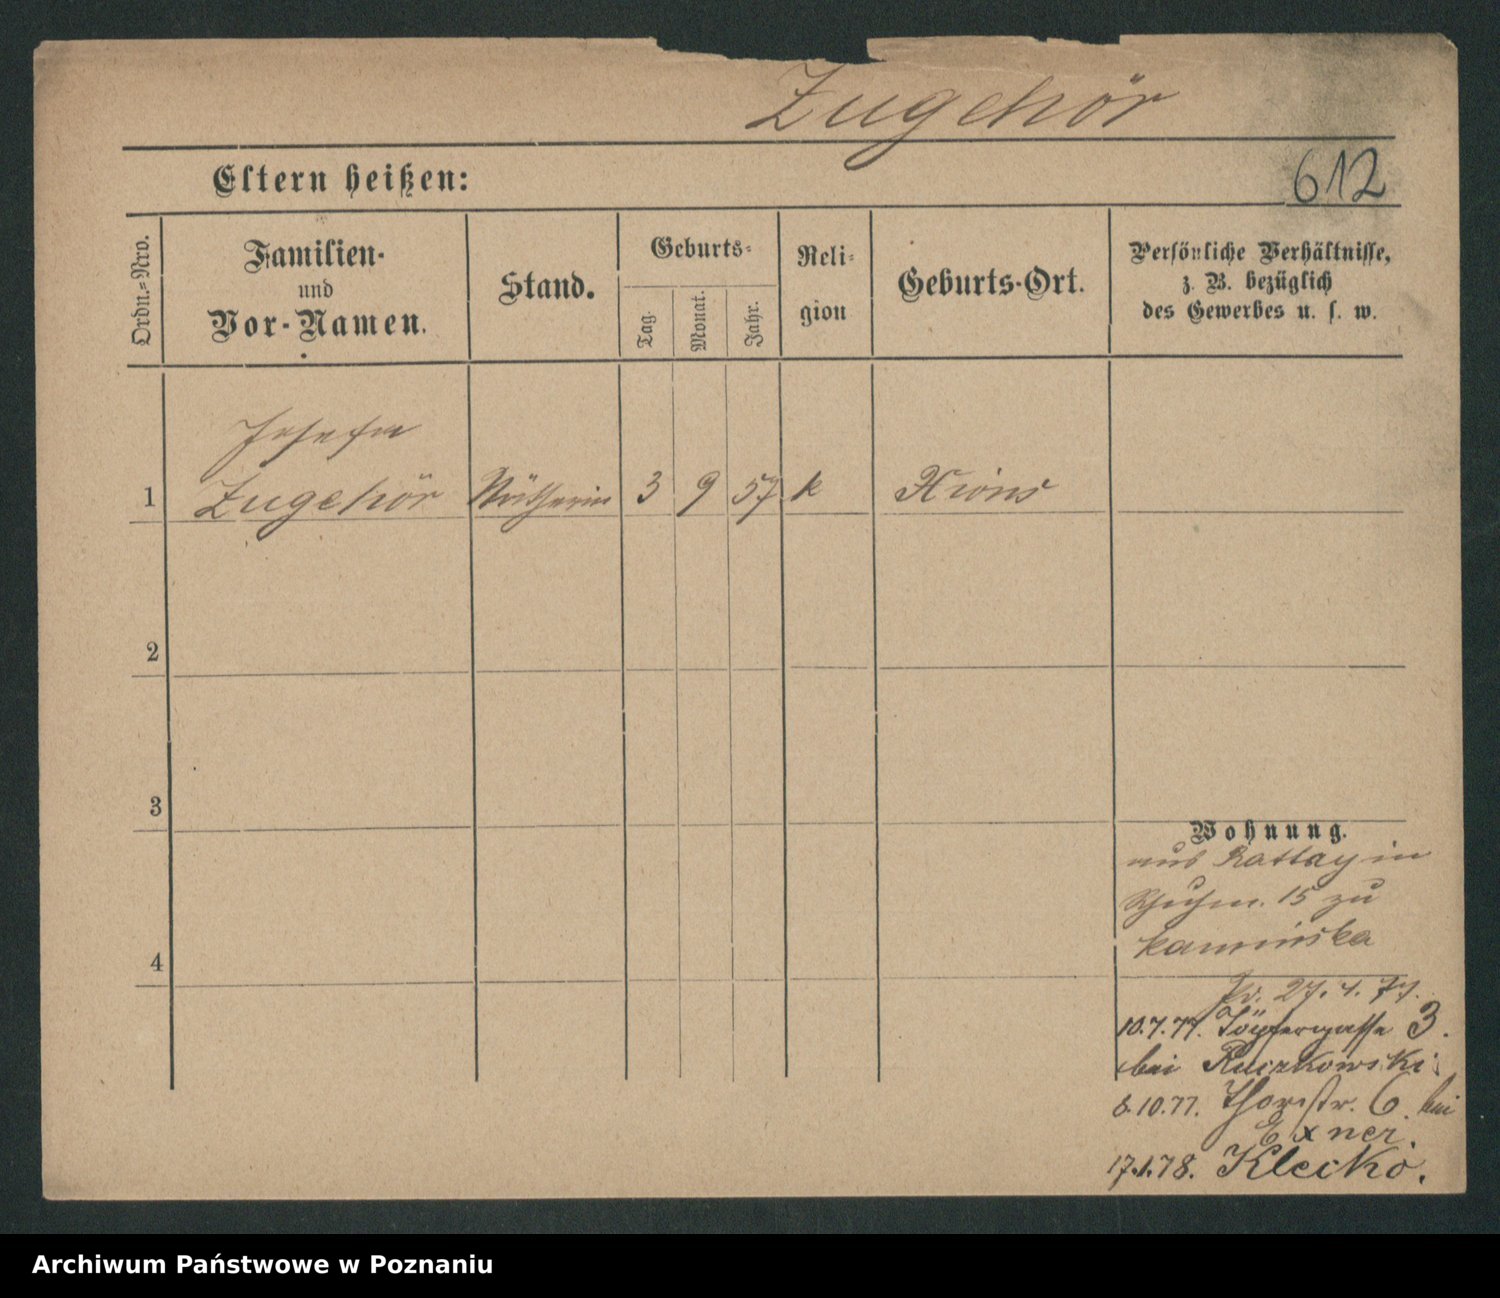 Zugehör
Eltern heißen:
612
Ordn.=Nro.
Familien-
und
Vor-Namen.
Stand.
Geburts=
Tag.
Monat.
Jahr.
Reli=
gion
Geburts-Ort.
Persönliche Verhältnisse,
z. B. bezüglich
des Gewerbes u. s. w.
Josefa
1 Zugehör Nätherin 3 9 57 k Xions
2
3
Wohnung.
aus Rattay in
15 zu
Kaminska
27. 4. 77.
10.7.77. Töpfergasse 3.
bei Ruczkowski
8.10.77. Thorstr. 6. bei
Exner.
17.1.78. Klecko.
4
Archiwum Państwowe w Poznaniu